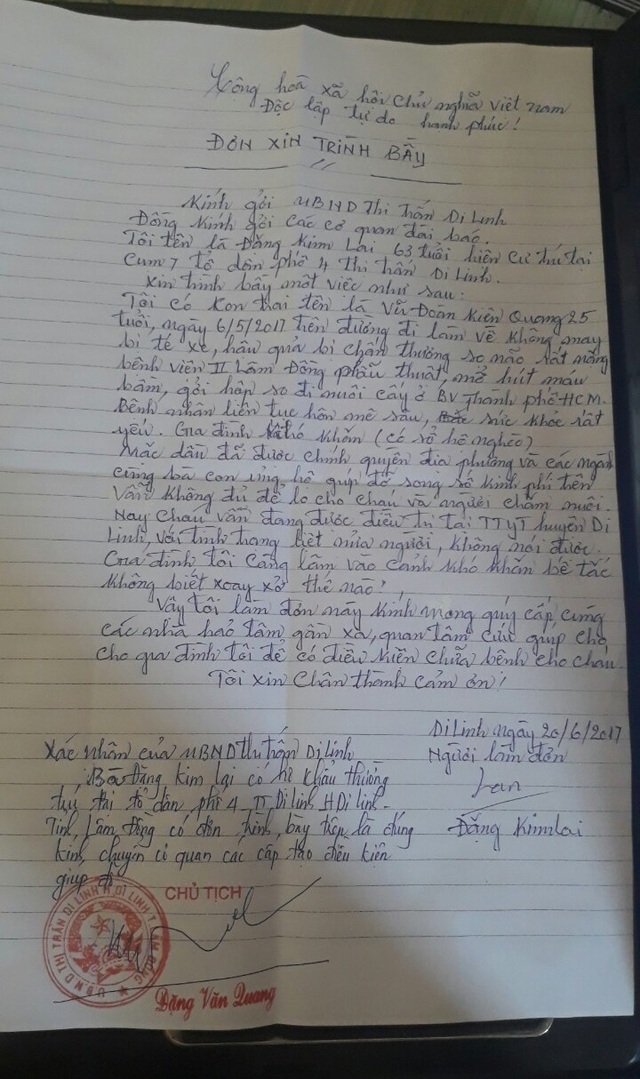 Cộng hoà xã hội chủ nghĩa việt nam
Độc lập tự do hạnh phúc!
ĐƠN XIN TRÌNH BẦY
Kính gởi UBND Thị trấn Di Linh
Đồng kính gởi các cơ quan đài báo.
Tôi tên là Đặng Kim Lai 63 tuổi hiện cư trú tại
Cụm 7 tổ dân phố 4 thị trấn Di Linh.
Xin trình bày một việc như sau:
Tôi có kon trai tên là Vũ Đoàn Kiên Quang 25
tuổi, ngày 6/5/2017 trên đường đi làm về không may
bị té xe, hậu quả bị chấn thường sọ não rất nặng
bệnh viện II Lâm Đồng phẫu thuật, mở hút máu
bầm, gởi hộp sọ đi nuôi cấy ở BV Thành phố HCM.
Bệnh nhân liên tục hôn mê sâu, sức khỏe rất
yếu. Gia đình khó khăn (có sổ hộ nghèo)
Mặc dầu đã được chính quyền địa phương và các ngành
cùng bà con ủng hộ giúp đỡ song số kinh phí trên
vẫn không đủ để lo cho cháu và người chăm nuôi.
Nay cháu vẫn đang được điều trị tại TTYT huyện Di
Linh, với tình trạng liệt nửa người, không nói được.
Gia đình tôi càng lâm vào cảnh khó khăn bế tắc
không biết xoay xở thế nào!
Vậy tôi làm đơn này kính mong quý cấp, cùng
các nhà hảo tâm gần xa, quan tâm cứu giúp cho
cho gia đình tôi để có điều kiện chữa bệnh cho cháu.
Tôi xin chân thành cảm ơn!
Di Linh ngày 20/6/2017
Người làm đơn
Lan
Đặng Kim Lai
Xác nhận của UBND thị trấn Di Linh
Bà Đặng Kim lại có hộ khẩu thường
trụ tại tổ dân phố 4 TT Di Linh, H Di Linh-
Tỉnh Lâm Đồng có đơn trình bày trên là đúng
kính chuyển cơ quan các cấp tạo điều kiện
giúp đỡ
CHỦ TỊCH
U.B.N.D THỊ TRẤN DI LINH H. DI LINH T. LÂM ĐỒNG
Đặng Văn Quang